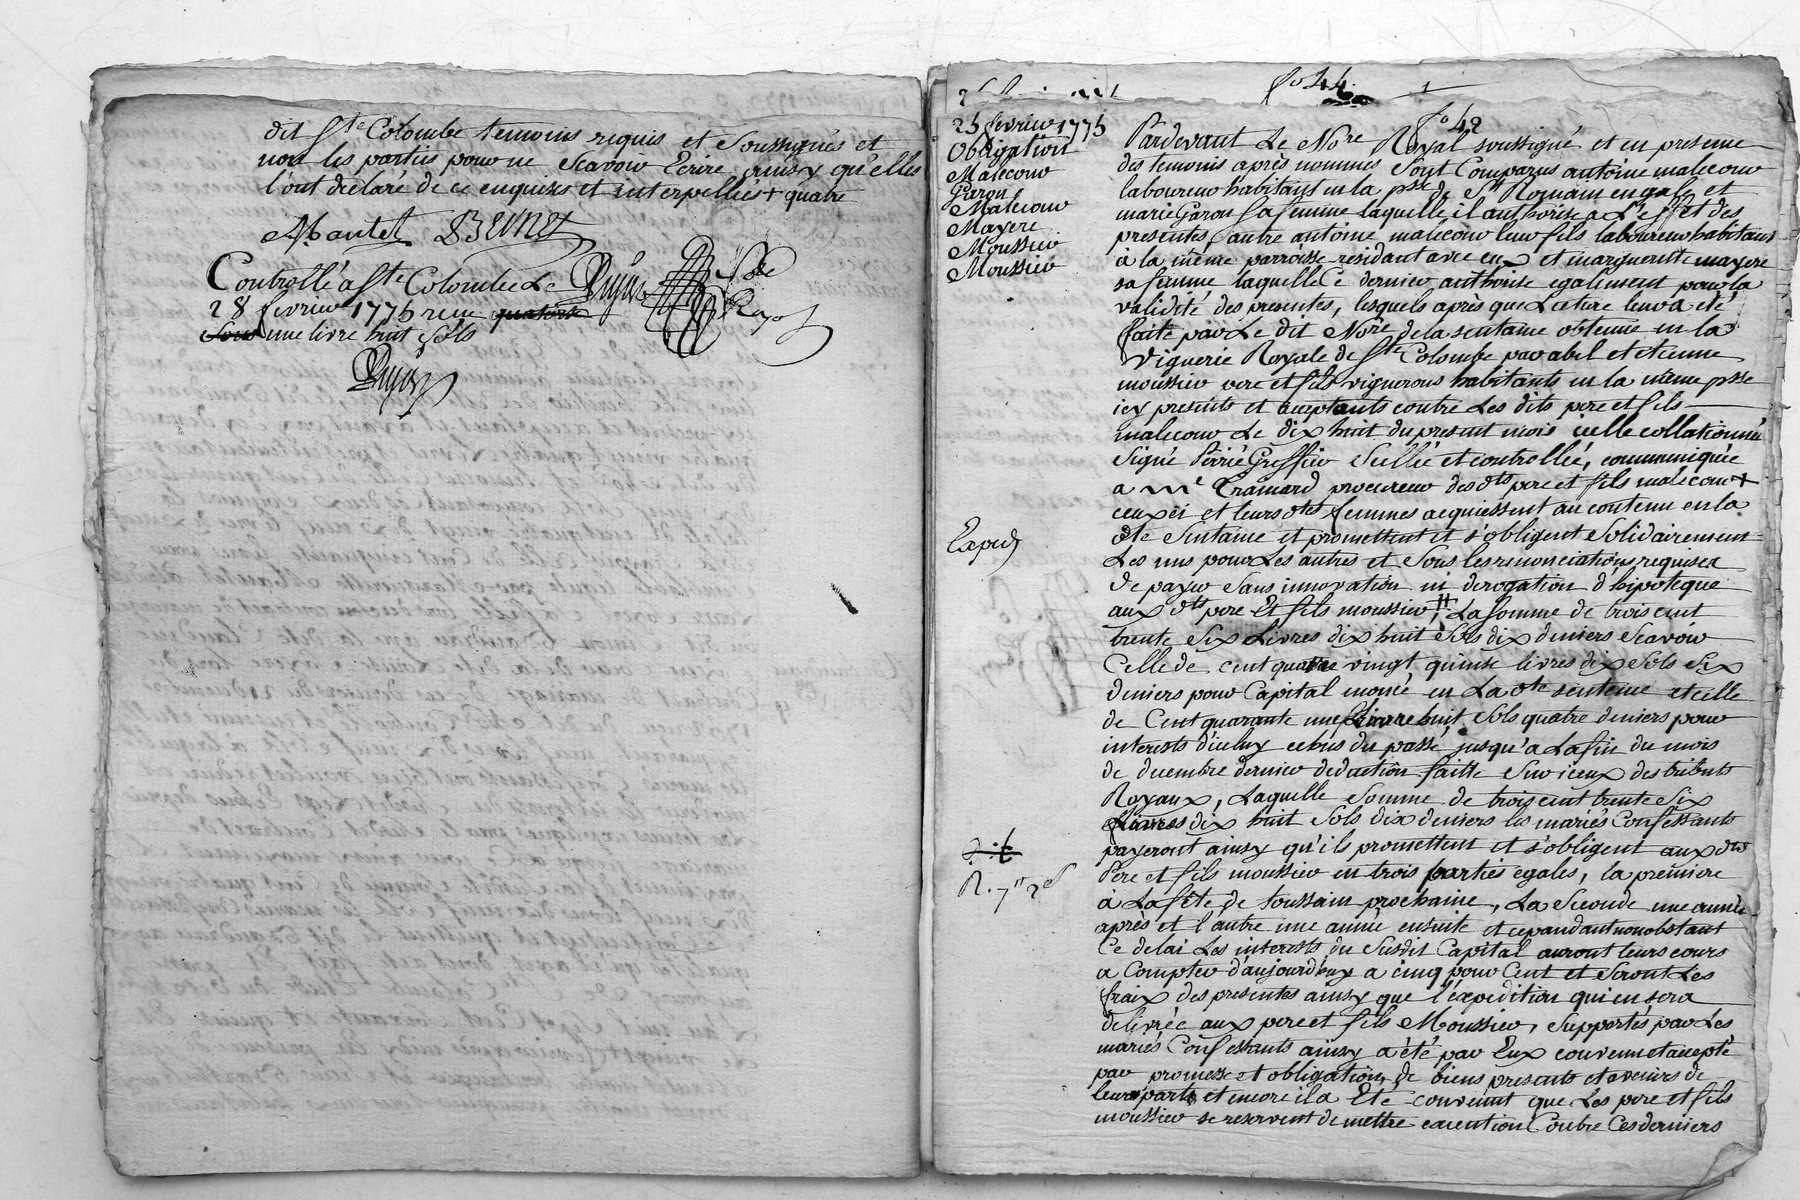 dit Ste Colombe temoins requis et Soussignés et
non les parties pour ne Scavoir Ecrire ainsy qu'elles
l'ont déclaré de ce enquises et interpellées + quatre
AMantet
Controllé a Ste Colombe Le
28 fevrier 1775 reçu quatorze
Sols une livre huit Sols
fo 44
fo 42
25 fevrier 1775
Obligation
Malecour
Garon
Malecour
Mayere
Moussier
Moussier
Pardevant Le Nore Royal soussigné et en presence
des temoins après nommés Sont Comparus antoine malecour
laboureur habitant en la psse de St Romain en gales et
marie Garon Sa femme laquelle il authorise a L'effet des
presentes, autre antoine malecour leur fils laboureur habitant
à la même parroisse residant avec eux et marguerite mayere
sa femme laquelle Ce dernier authorise egalement pour la
validité des presentes, lesquels après que Lecture leur a été
faite par Le dit Nore de la sentance obtenue en la
Viguerie Royale de Ste Colombe par abel et etienne
moussier pere et fils vignerons habitants en la même psse
icy presents et acceptants contre Les dits pere et fils
malecour Le dix huit du present mois icelle collationnée
Signé Perrié Greffier Scellée et controllée, communiquée
a Me Tramard procureur des dts pere et fils malecour +
ceux ci et leurs dtes femmes acquiessent au contenu en la
dte Sentance et promettent et s'obligent Solidairement
Les uns pour Les autres et Sous les renonciations requises
De payer Sans innovation ni derogation d'hipoteque
aux dts pere Et fils moussier La Somme de trois cent
trente Six Livres dix huit Sols dix deniers Scavoir
Celle de cent quatre vingt quinse livres dix Sols Six
deniers pour Capital enoncé en La dte sentence et celle
de Cent quarante une Livre huit Sols quatre deniers pour
interests d'iceluy echus du passé jusqu'a La fin du mois
de decembre dernier deduction faitte Sur iceux des tributs
Royaux, Laquelle Somme de trois cent trente Six
Livres dix huit Sols dix deniers les mariés Confessants
payeront ainsy qu'ils promettent et s'obligent aux dts
Pere et fils moussier en trois parties egales, la premiere
à La fête de toussain prochaine, La Seconde une année
après et l'autre une année ensuite et cepandant nonobstant
Ce delai Les interests du Susdit Capital auront leurs cours
a Compter d'aujourd'huy a cinq pour Cent et Seront Les
fraix des presentes ainsy que l'expedition qui en sera
delivrée aux pere et fils Moussier, Supportés par Les
mariés Confessants ainsy a été par Eux convenu et accepté
par promesse et obligation de biens presents et avenirs de
leurs parts et encore il a Eté convenu que Les pere et fils
moussier se reservent de mettre execution Contre Ces derniers
Exped